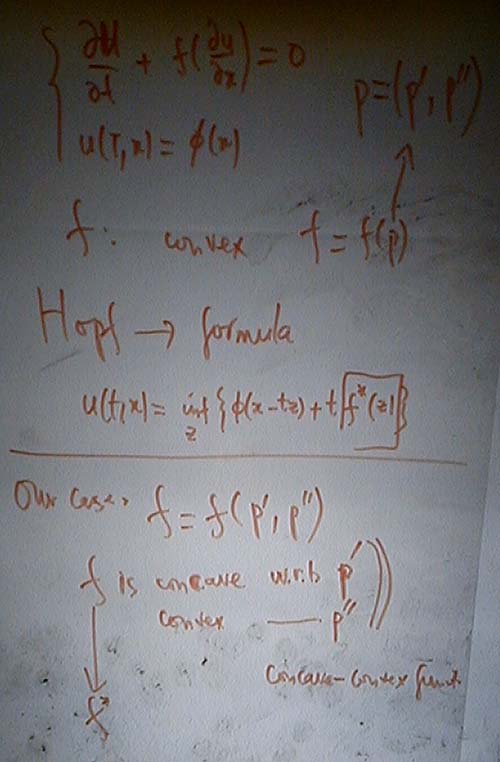 ∂u/∂t + f(∂u/∂x) = 0
u(T,x) = ϕ(x)
p=(p', p'')
f: convex f = f(p)
Hopf → formula
u(t,x) = inf_z {ϕ(x-tz) + t f*(z)}
Our case, f = f(p', p'')
f is concave w.r.t p'
convex —— p''
concave-convex funct.
f*